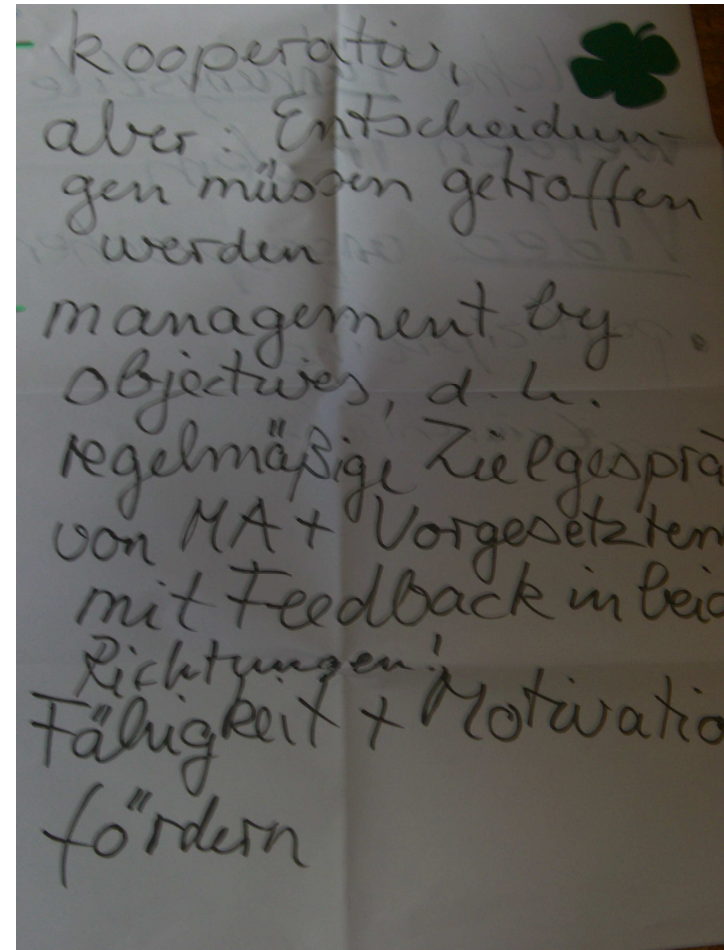 - kooperativ,
aber: Entscheidun-
gen müssen getroffen
werden
- management by
objectives, d. h.
regelmäßige Zielgesprä
von MA + Vorgesetzten
mit Feedback in beid
Richtungen!
Fähigkeit + Motivatio
fördern